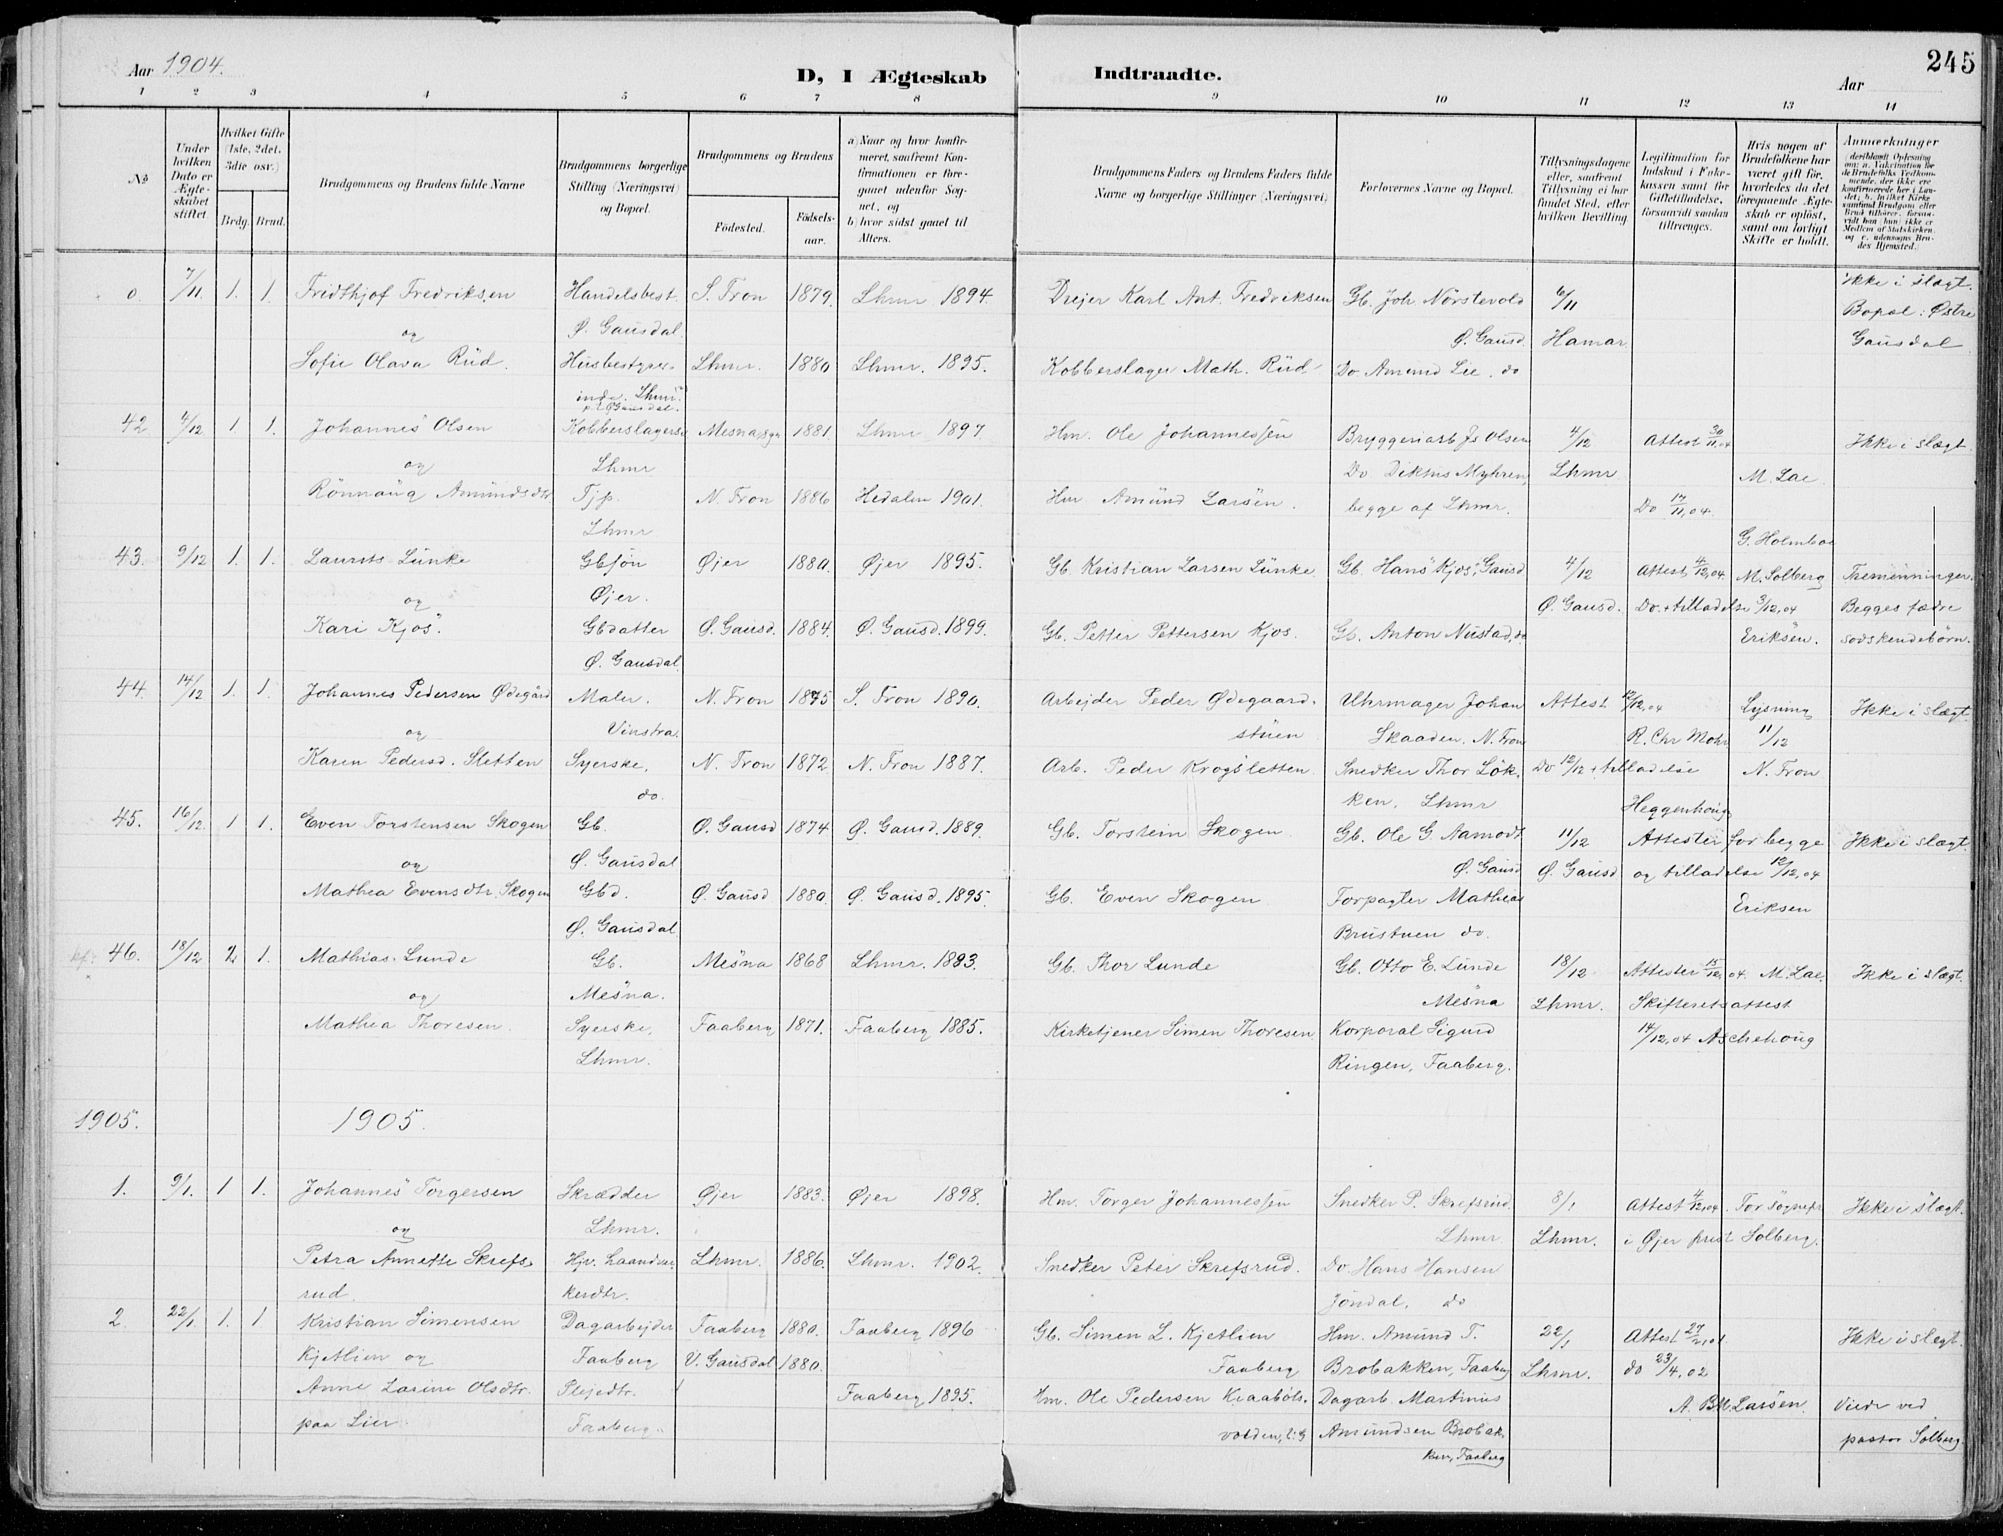 245
Aar 1904. D, I Ægteskab Indtraadte. Aar
1 2 3 4 5 6 7 8 9 10 11 12 13 14
№ Under hvilken Dato er Ægteskabet stiftet. Hvilket Gifte (1ste, 2det. 3die osv.) Brdg. Brud. Brudgommens og Brudens fulde Navne Brudgommens borgerlige Stilling (Næringsvei) og Bopæl. Brudgommens og Brudens Fødested. Fødselsaar. a) Naar og hvor konfirmeret, saafremt Konfirmationen er foregaaet udenfor Sognet, og b) hvor sidst gaaet til Alters. Brudgommens Faders og Brudens Faders fulde Navne og borgerlige Stillinger (Næringsvei) Forlovernes Navne og Bopæl. Tillysningsdagene eller, saafremt Tillysning ei har fundet Sted, efter hvilken Bevilling Legitimation for Indskud i Enkekassen samt for Giftetilladelse, forsaavidt saadan tiltrænges. Hvis nogen af Brudefolkene har været gift før, hvorledes da det foregaaende Ægteskab er opløst, samt om lovligt Skifte er holdt. Anmærkninger
o. 7/11 1. 1. Fridthjof Fredriksen Handelsbest. S. Fron 1879. Lhmr 1894. Drejer Karl Ant. Fredriksen Gb. Joh Nørstevold 6/11 Ikke i slægt.
og Ø. Gausdal. Ø. Gausd. Hamar. Bopæl: Østre
Sofie Olava Rüd. Husbestyrer- Lhmr. 1880 Lhmr. 1895. Kobberslager Math. Rüd. Do Amund Lie. do Gausdal.
inde. Lhmr.
42. 4/12 1 1. Johannes Olsen Kobberslagersv. 1881. Lhmr 1897. Hm. Ole Johannessen Bryggeriarb Js Olsen 4/12 Attest 30/11.04 Ikke i slægt.
og Lhmr Do Myhren, Lhmr M. Lae.
Rönnaug Amundsdtr Tjp. N. Fron 1886 Hedalen 1901. Hm Amund Larsen. begge af Lhmr. Do 17/11,04.
Lhmr G. Holmboe
43. 9/12 1. 1. Laurits Lunke Gbsøn Øjer 1880. Øjer 1895. Gb. Kristian Larsen Lunke Gb. Hans Kjos, Gausd 4/12 Attest 4/12,04. M. Solberg Tremenninger.
og Øjer. Ø. Gausd. Do. + tilladelse 3/12,04 Begges fædre
Kari Kjos. Gbdatter Ø. Gausd. 1884. Ø. Gausd. 1899. Gb. Petter Pettersen Kjos. Gb. Anton Nustad, do Eriksen. sødskendebørn.
Ø. Gausdal.
44. 14/12 1. 1. Johannes Pedersen Ødegård Maler. N. Fron 1875 S. Fron 1890. Arbejder Peder Ødegaard- Uhrmager Johan Attest 12/12,04 Lysning Ikke i slægt
og Vinstra. stuen Skaaden, N. Fron R. Chr Mohr 11/12
Karen Pedersd. Sletten Syerske, N. Fron 1872 N. Fron 1887. Arb. Peder Krogsletten Snedker Thor Løk- Do 12/12 + tilladelse N. Fron
do. ken, Lhmr Heggenhoug
45. 16/12 1 1. Even Torstensen Skogen Gb. Ø. Gausd 1874 Ø. Gausd. 1889. Gb. Torstein Skogen. Gb. Ole G Aamodt 11/12 Attester for begge Ikke i slægt.
og Ø. Gausdal Ø. Gausd Ø. Gausd og tilladelse 12/12,04
Mathea Evensdtr. Skogen Gbd. Ø. Gausd 1880. Ø. Gausd. 1895. Gb. Even Skogen Forpagter Mathias Eriksen
Ø. Gausdal Brustuen do.
46. 18/12 2 1. Mathias Lunde Gb. Mesna 1868 Lhmr. 1883. Gb. Thor Lunde Gb. Otto E. Lunde 18/12 Attester 15/12,04. M. Lae. Ikke i slægt.
og Mesna. Mesna Lhmr. Skifteretsattest
Mathea Thoresen. Syerske, Faaberg 1871. Faaberg 1885. Kirketjener Simen Thoresen Korporal Sigurd 14/12,04 Aschehoug
Lhmr. Ringen, Faaberg.
1905. 1905.
1. 9/1. 1 1. Johannes Torgersen Skrædder Øjer 1883. Øjer 1898. Hm. Torger Johannessen Snedker P. Skrefsrud. 8/1 Attest 4/12,04. For sognepr. Ikke i slægt.
og Lhmr. Lhmr. Lhmr. i Øjer prest Solberg.
Petra Annette Skrefs- Hjv. haandvær- Lhmr. 1886. Lhmr. 1902. Snedker Peter Skrefsrud. Do Hans Hansen
rud. kerdtr. Jöndal. do
2. 22/1. 1. 1 Kristian Simensen Dagarbejder Faaberg 1880. Faaberg 1896 Gb. Simen L. Kjetlien Hm. Amund T. 22/1 Attest Ikke i slegt.
Kjetlien og Faaberg V. Gausdal 1880. Faaberg Brobakken, Faaberg Lhmr. do 23/4,02
Anne Larine Olsdtr. Plejedtr. Faaberg 1895. Hm. Ole Pedersen Kraabøls- Dagarb. Martinus A. BM Larsen. Viede ved
paa Lier. Faaberg. volden, Amundsen Brobak- pastor Solberg.
ken, Faaberg